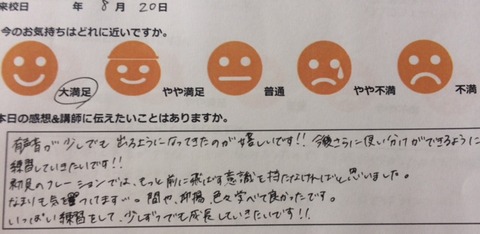 来校日 年 8月 20日
今のお気持ちはどれに近いですか。
大満足 やや満足 普通 やや不満 不満
本日の感想&講師に伝えたいことはありますか。
有声音が少しでも出るようになってきたのが嬉しいです!! 今後さらに使い分けができるように
練習していきたいです!!
のナレーションでは、もっと前に飛ばす意識を持たなければと思いました。
なまりも気をつけます…。間や、抑揚、色々学べて良かったです。
いっぱい練習をして、少しずつでも成長していきたいです!!